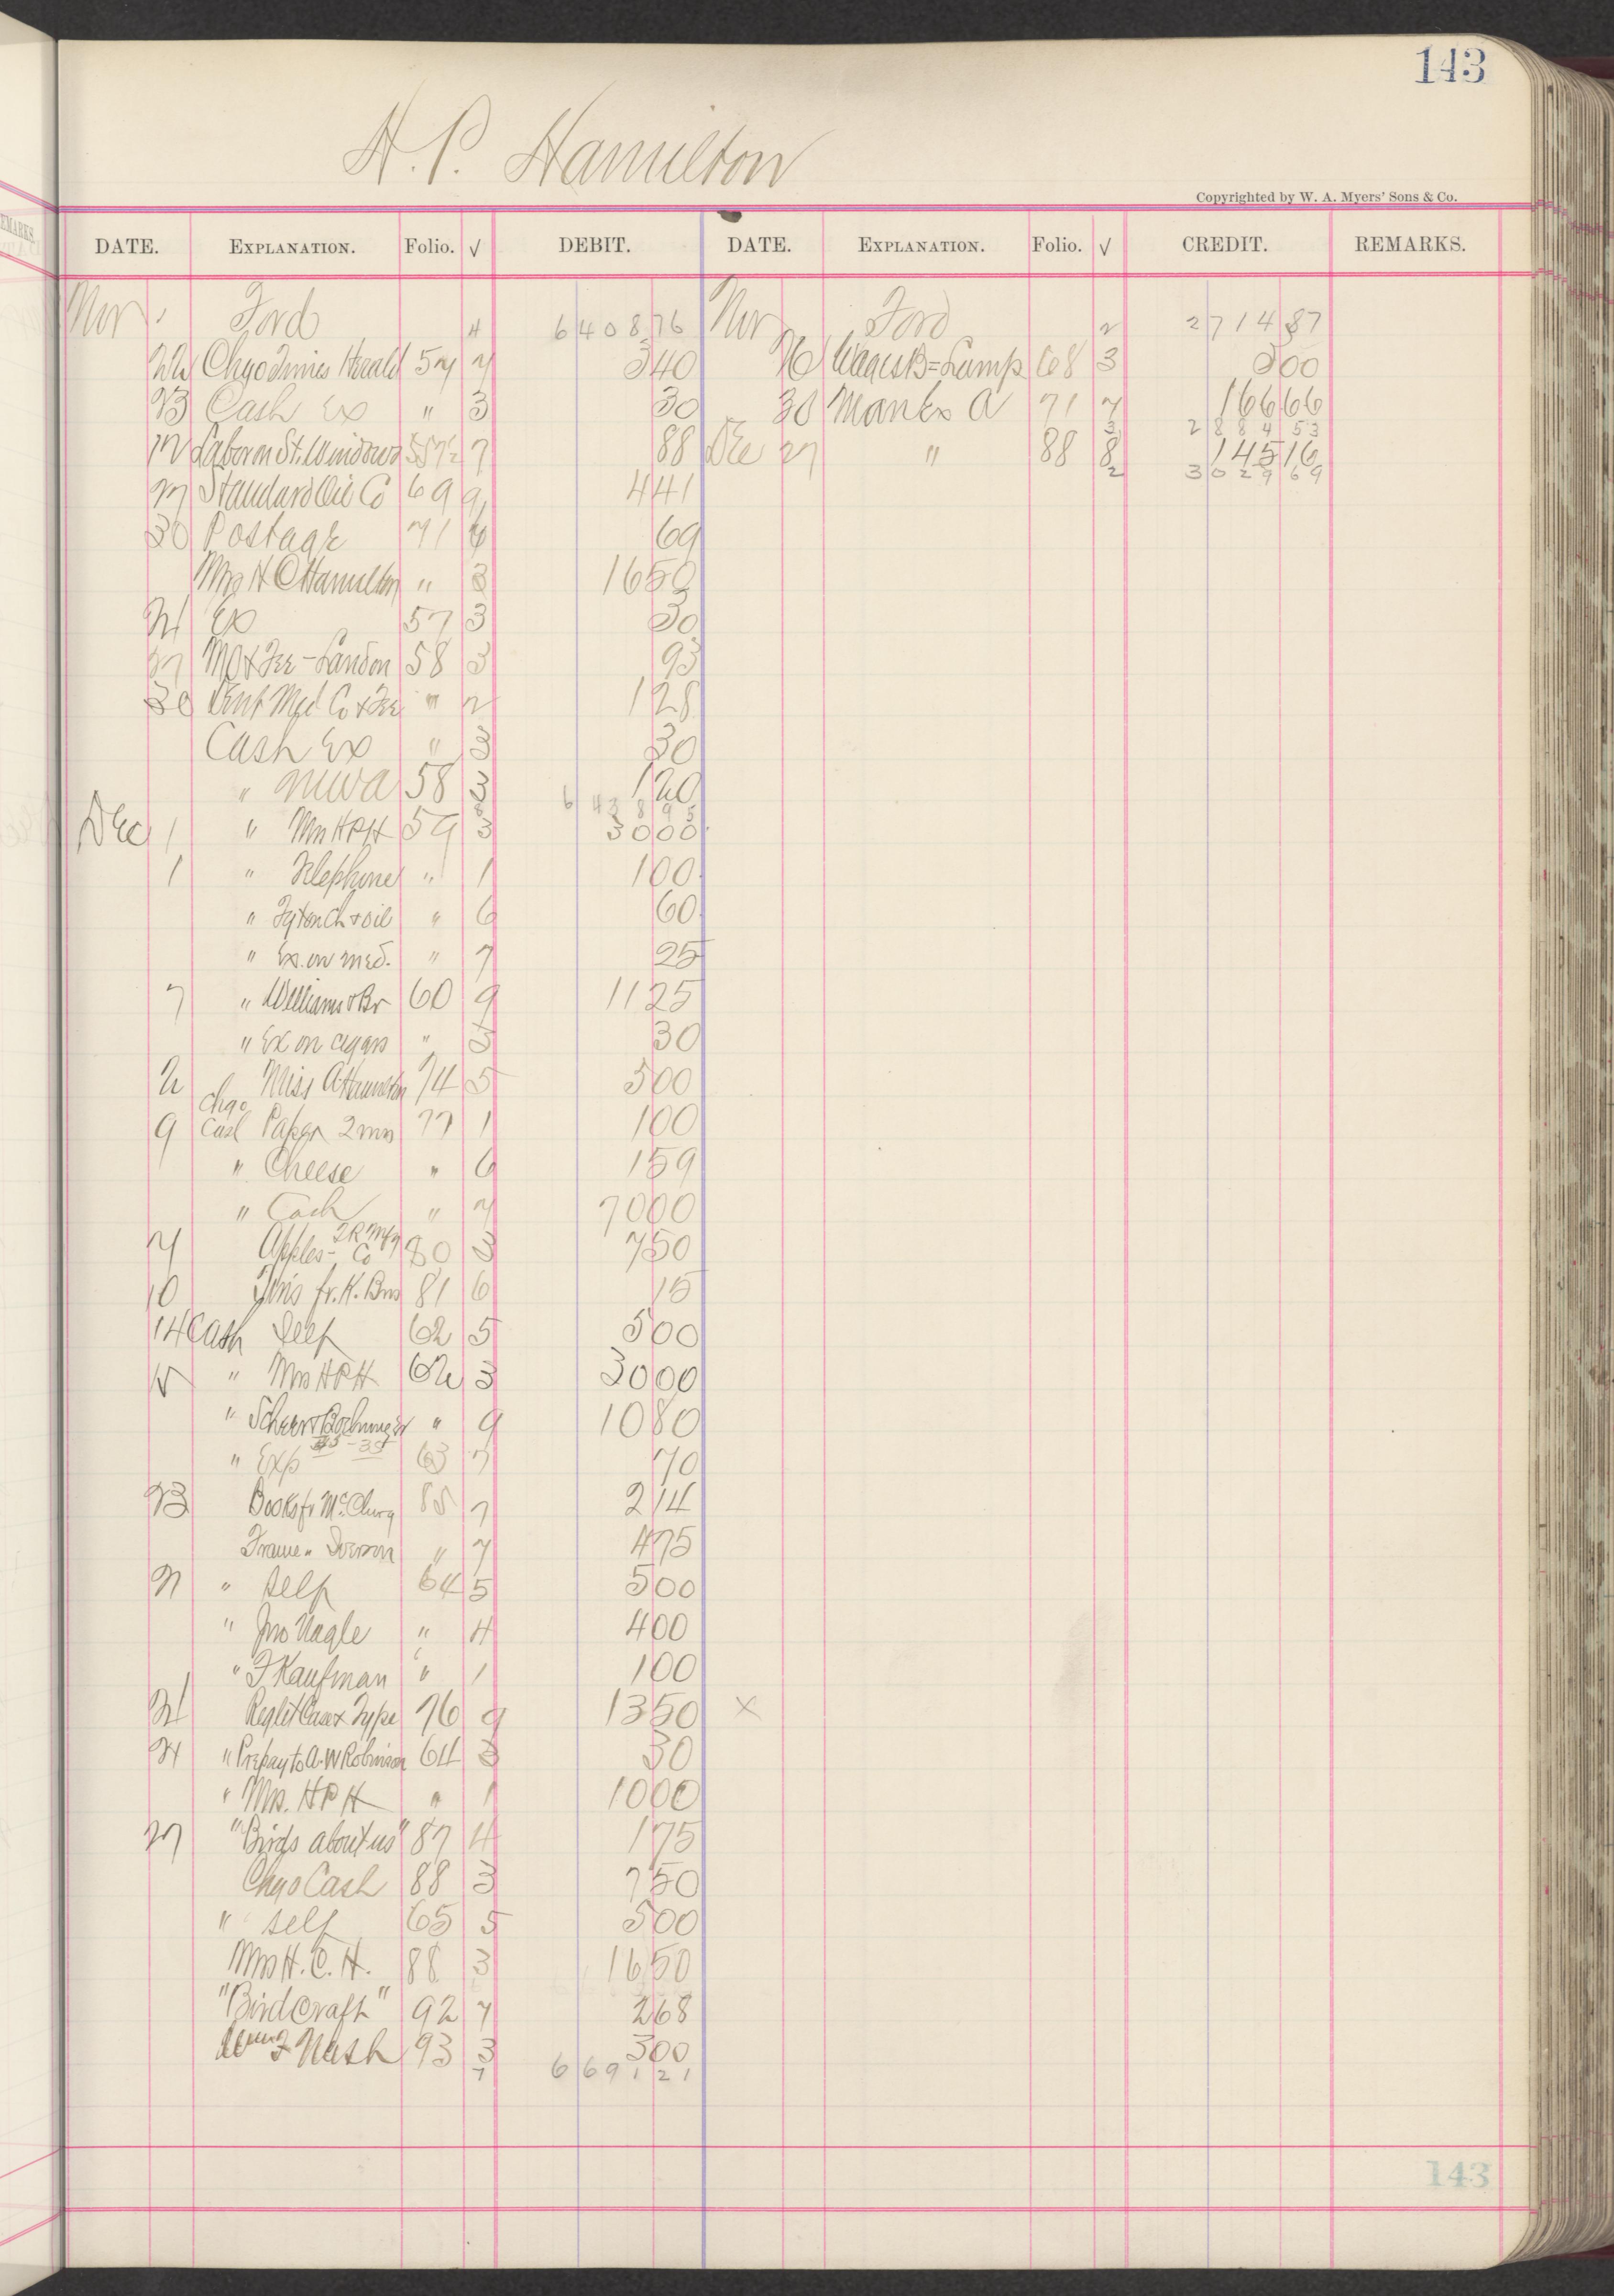 143
H. P. Hamilton
Copyrighted by W. A. Myers' Sons & Co.
DATE. EXPLANATION. Folio. √ DEBIT. DATE. EXPLANATION. Folio. √ CREDIT. REMARKS.
Nov 1 Ford 4 6408 76 Nov Ford 2 2714 87
22 Chgo Times Herald 57 7 3 40 26 Wages B=Lamp 68 3 3 00
23 Cash Ex " 3 30 30 Man Ex a 71 7 166 66
3 2884 53
12 Labor on St. Windows 72 7 88 Dec 27 " 88 8 145 16
2 3029 69
27 Standard Oil Co 69 9 4 41
30 Postage 71 4 69
Mrs H C Hamilton " 3 16 50
21 Ex 57 3 30
27 M O & Fee - Landon 58 3 93
30 Med Co & Fee " 2 1 28
Cash Ex " 3 30
" MWA 58 3 1 20
6438 95
Dec 1 " Mrs HPH 59 3 30 00
1 " Telephone " 1 1 00
" & oil " 6 60
" Ex. on med. " 7 25
7 " Williams & Br 60 9 11 25
" Ex on cigars " 3 30
2 Miss A Hamilton 74 5 5 00
Chgo
9 Cash Paper 2 mos 77 1 1 00
" Cheese " 6 1 59
" Cash " 7 70 00
7 Apples - Co 80 3 7 50
10 fr. K. Bros 81 6 15
14 Cash Self 62 5 5 00
15 " Mrs HPH 62 3 30 00
" " 9 10 80
" Exp 63 7 70
23 Books fr McClurg 85 7 2 14
Frame " " 7 4 75
21 " Self 64 5 5 00
" Jno Nagle " 4 4 00
" F Kaufman " 1 1 00
21 Reglet Case & Type 76 9 13 50 x
24 " Prepay to A. W Robinson 64 3 30
" Mrs. HPH " 1 10 00
27 "Birds about us" 87 4 1 75
Chgo Cash 88 3 7 50
" Self 65 5 5 00
Mrs H. C. H. 88 3 16 50
"Bird Craft" 92 7 2 68
Nash 93 3 3 00
7 6691 21
143